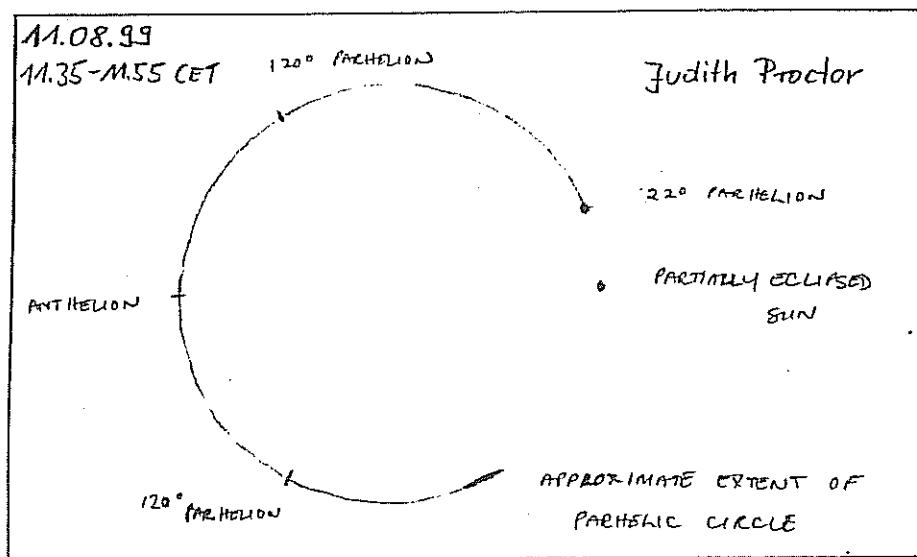 11.08.99
11.35-11.55 CET
120° PARHELION
Judith Proctor
22° PARHELION
PARTIALLY ECLIPSED
SUN
ANTHELION
120° PARHELION
APPROXIMATE EXTENT OF
PARHELIC CIRCLE